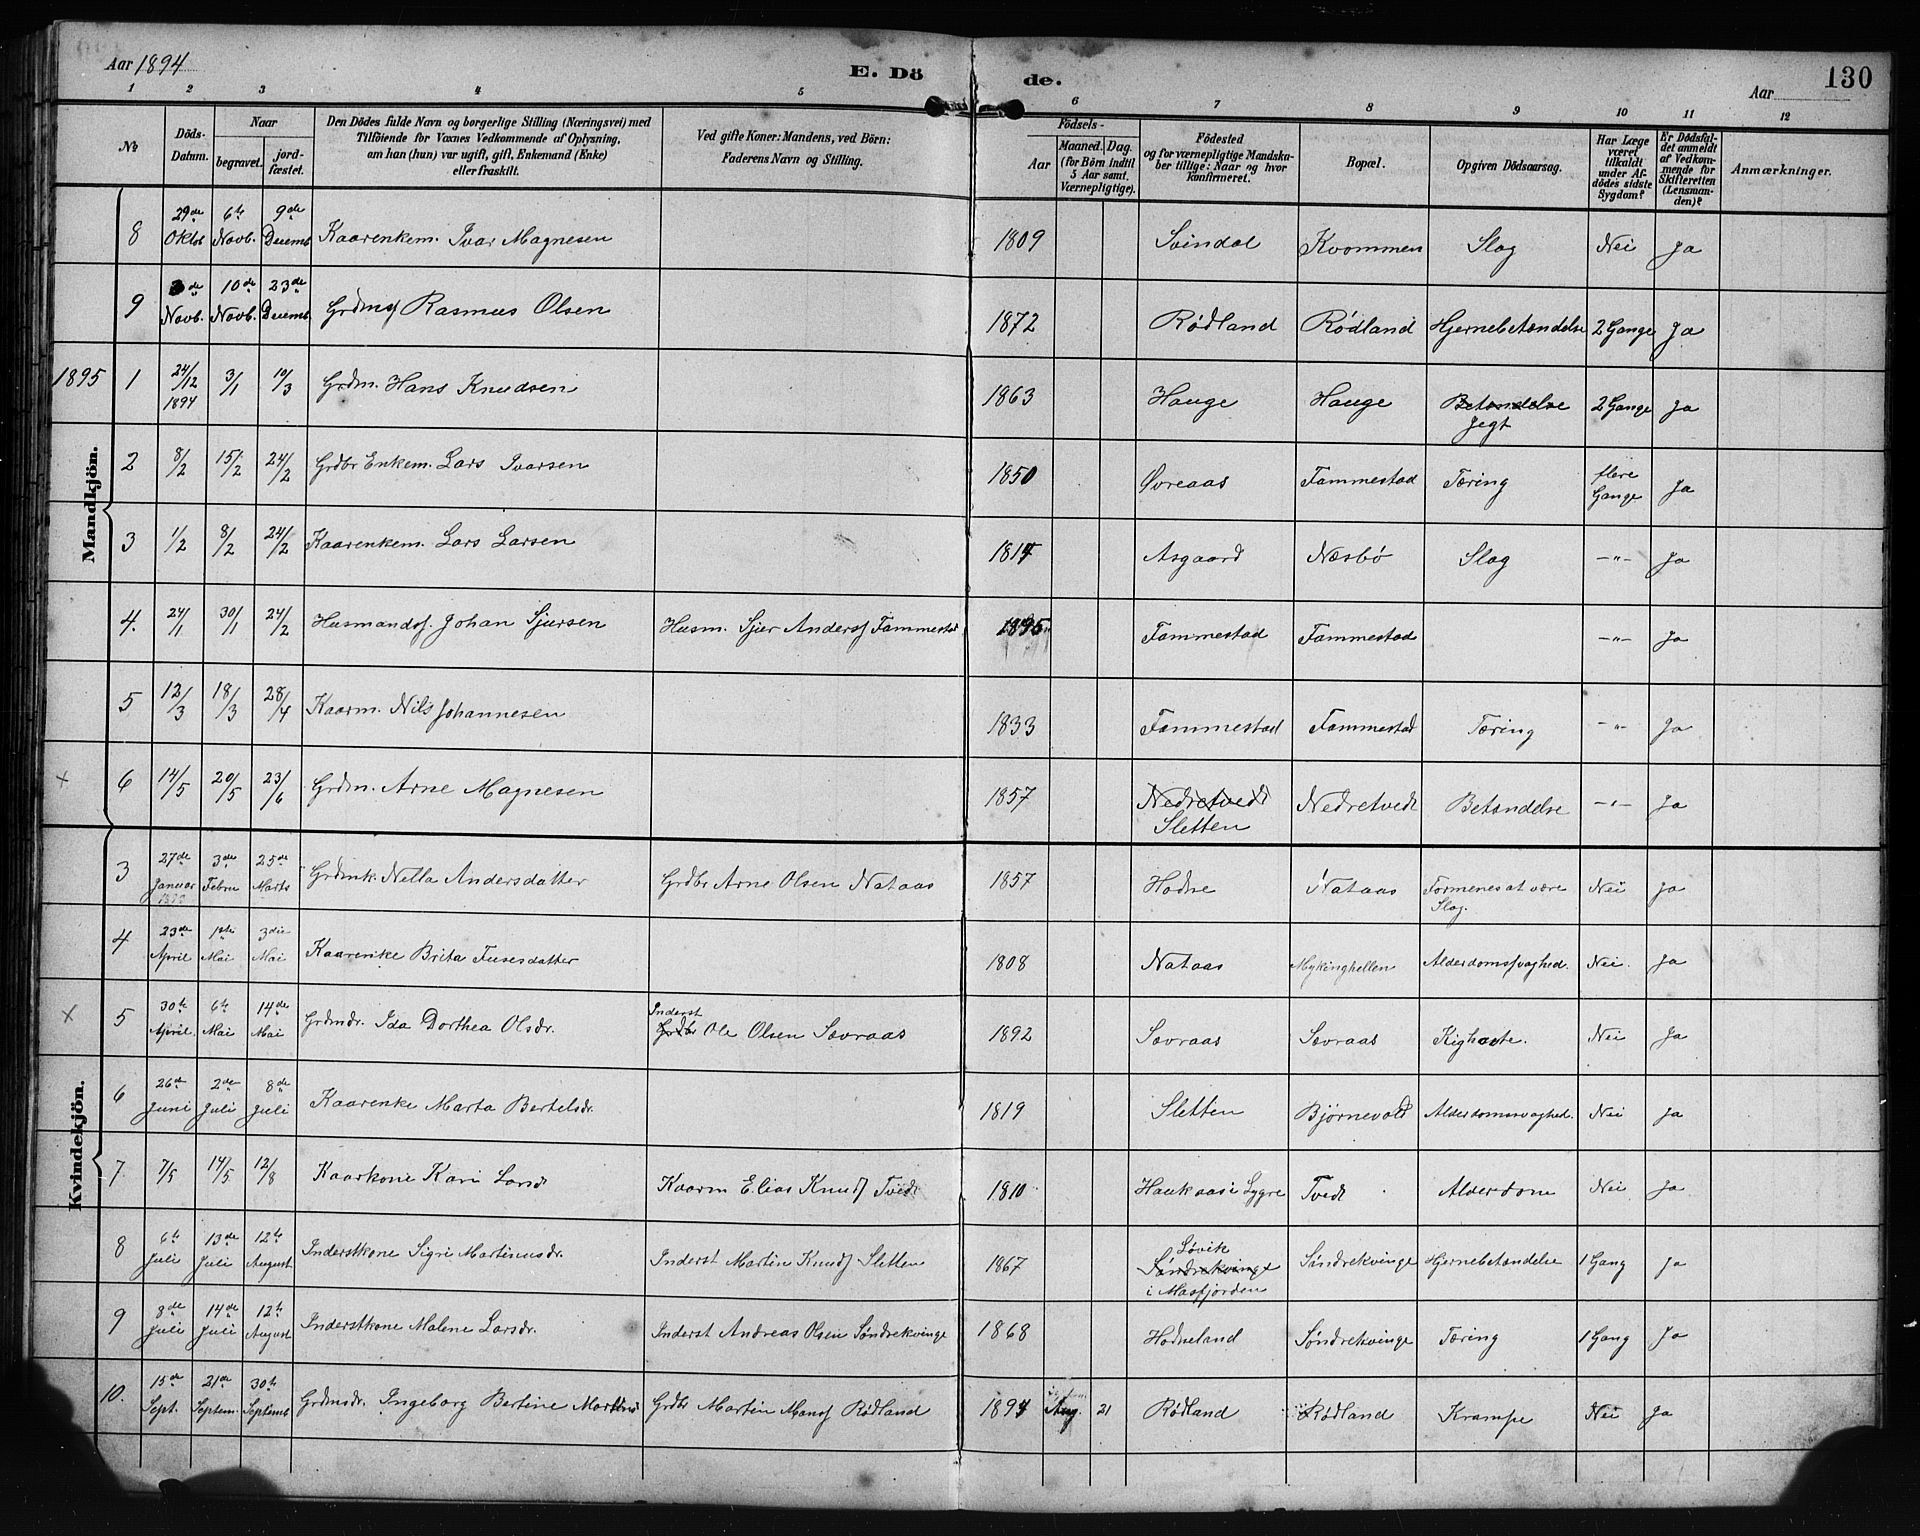 Aar 1894
E. Dö de.
130
Aar
1 2 3 4 5 6 7 8 9 10 11 12
No
Döds-Datum.
Naar
begravet.
jord-fæstet.
Den Dödes fulde Navn og borgerlige Stilling (Næringsvei) med
Tilföiende for Voxnes Vedkommende af Oplysning,
om han (hun) var ugift, gift, Enkemand (Enke)
eller fraskilt.
Ved gifte Koner: Mandens, ved Börn:
Faderens Navn og Stilling.
Födsels-
Aar
Maaned. Dag.
(for Börn indtil
5 Aar samt.
Værnepligtige).
Födested
og for værnepligtige Mandska-
ber tillige: Naar og hvor
konfirmeret.
Bopæl.
Opgiven Dödsaarsag.
Har Læge
været
tilkaldt
under Af-
dödes sidste
Sygdom?
Er Dödsfal-
det anmeldt
af Vedkom-
mende for
Skifteretten
(Lensman-
den)?
Anmærkninger.
8 29de Oktob 6te Novb. 9de Decemb Kaarenkem. Ivar Magnesen 1809 Svindal Kvommen Slag Nei Ja
9 de Novb. 10de Novb. 23de Decemb Grdmsf Rasmus Olsen 1872 Rödland Rödland Hjernebetændelse 2 Gange Ja
1895 1 24/12 1894 3/1 10/3 Grdm. Hans Knudsen 1863 Hauge Hauge Betændelse Jegt 2 Gange Ja
Mandkjön.
2 8/2 15/2 24/2 Grdbr Enkem. Lars Ivarsen 1850 Øvreaas Fammestad Tæring flere Gange Ja
3 1/2 8/2 24/2 Kaarenkem. Lars Larsen Asgaard Næsbø Slag -"- Ja
4. 24/1 30/1 24/2 Husmandsf. Johan Sjursen Husm. Sjur Andersf Fammestad 1895 Fammestad Fammestad -"- Ja
5 12/3 18/3 28/4 Kaarm. Nils Johannesen 1833 Fammestad Fammestad Tæring -"- Ja
x 6 14/5 20/5 23/6 Grdm. Arne Magnesen 1857 Nedretvedt Sletten Nedretvedt Betændelse -"- Ja
3 27de Januar 3de Febru 25de Marts Grdmk. Nella Andersdatter Grdbr Arne Olsen Nataas 1857 Hodne Nataas Formenes at være Slag. Nei Ja
4 23de April 1ste Mai 3die Mai Kaarenke Brita Fusesdatter 1808 Nataas Mykinghellen Alderdomssvaghed. Nei. Ja
x 5 30te April. 6te Mai 14de Mai Grdmdr. Ida Dorthea Olsdr. Inderst Grdbr Ole Olsen Sævraas 1892 Sævraas Sævraas Kighoste. Nei Ja
Kvindekjön.
6 26de Juni 2de Juli 8de Juli Kaarenke Marta Bertelsdr. 1819 Sletten Bjørnevold Alderdomssvaghed. Nei Ja
7. 7/5 14/5 12/8 Kaarkone Kari Larsd Kaarm Elias Knudf Tvedt 1810 Haukaas i Lygre Tvedt Alderdom Nei Ja
8 6te Juli 13de Juli 12te August Inderstkone Sigri Martinusdr. Inderst Martin Knudf Sletten 1867 Løvik Søndrekvinge i Masfjorden Søndrekvinge Hjernebetændelse 1 Gang Ja
9 8de Juli 14de Juli 12te August Inderstkone Malene Larsdr. Inderst Andreas Olsen Søndrekvinge 1868 Hodneland Søndrekvinge Tæring 1 Gang Ja
10. 15de Sept. 21de Septem. 30te Septemb Grdmsdr. Ingeborg Bertine Martinsd Grdbr Martin Monsf Rödland 1894 Aug. 21 Rödland Rödland Krampe Nei Ja